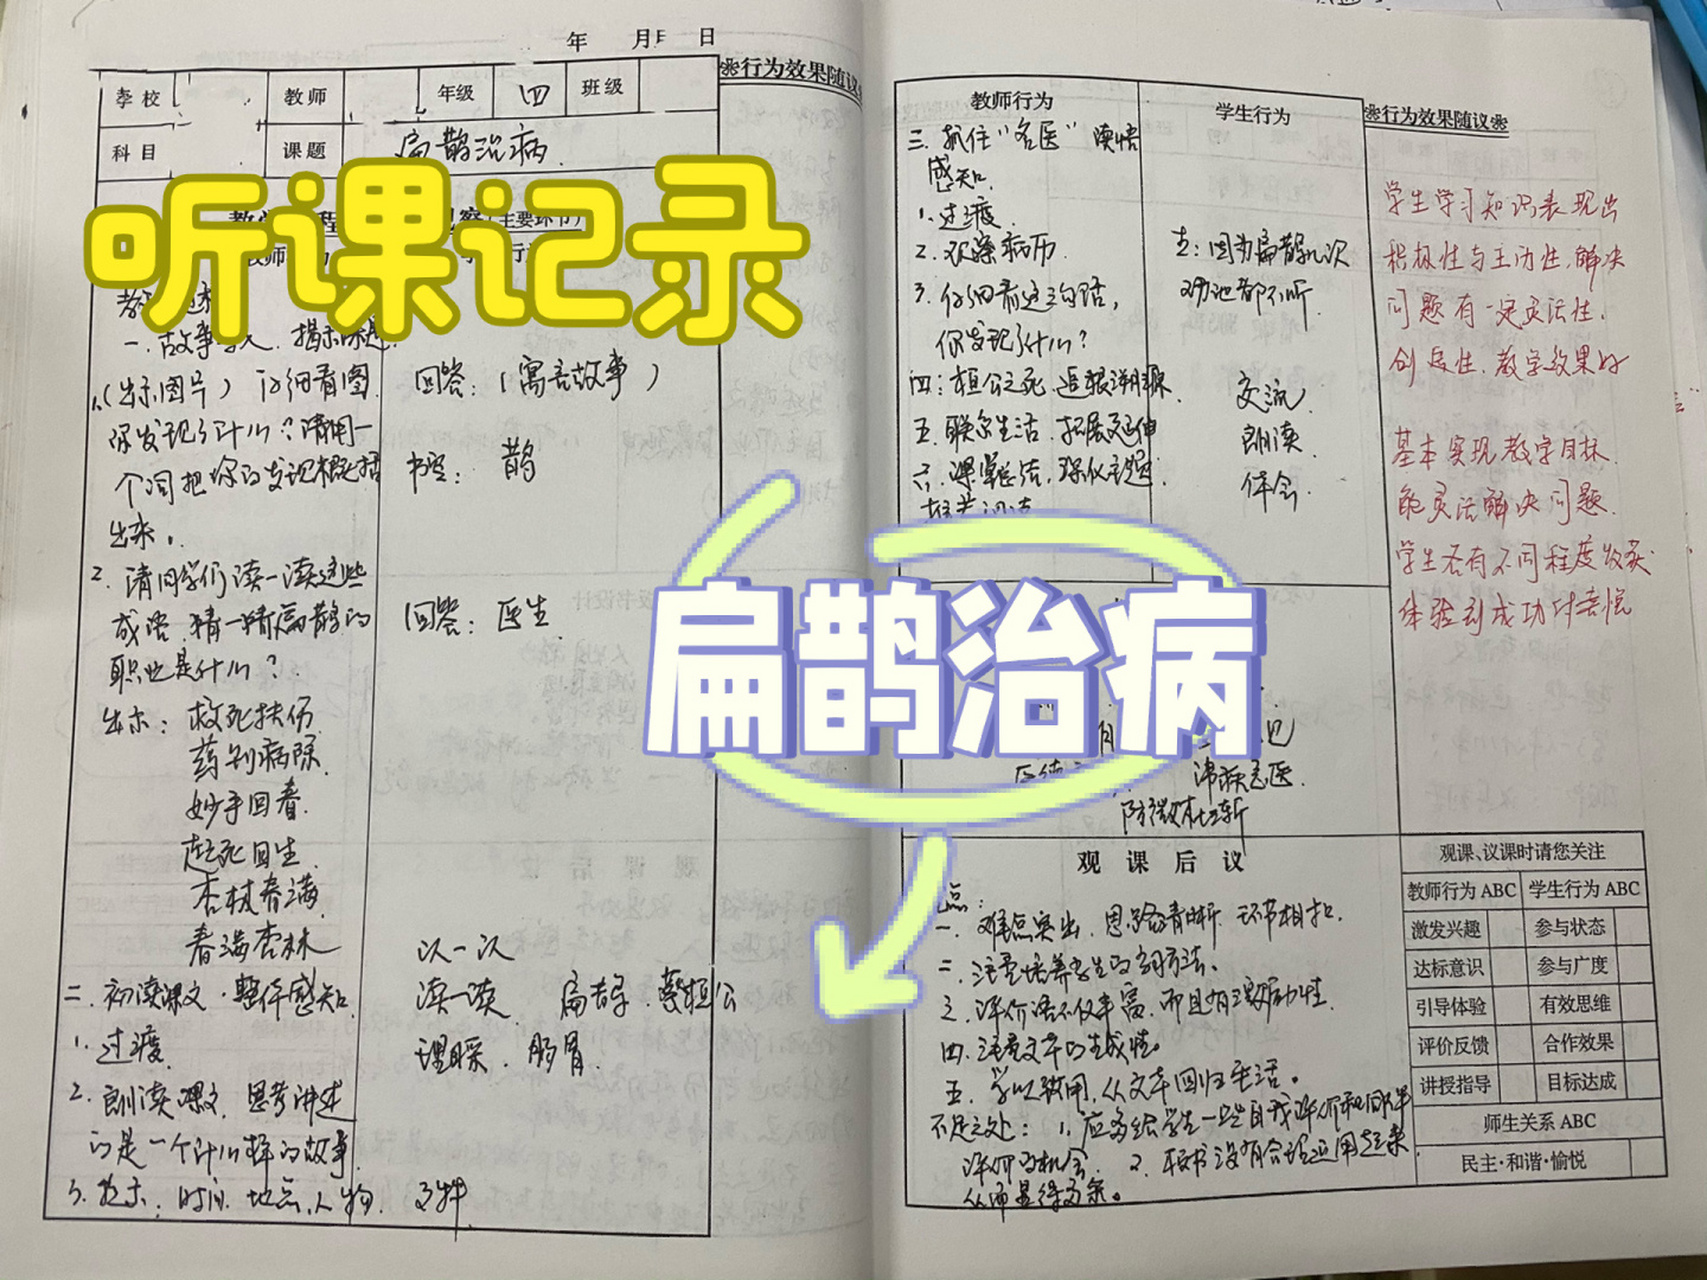 年 月 日
学校 教师 年级 四 班级
科目 课题 扁鹊治病
※行为效果随议
听课记录
(主要环节)
一、故事导入，揭示课题
1、(出示图片) 仔细看图
你发现了什么？请用一
个词把你的发现概括
出来。
回答：(寓言故事)
书空： 鹊
2、请同学们读一读这些
成语，猜一猜扁鹊的
职业是什么？
回答：医生
出示：救死扶伤
药到病除
妙手回春
起死回生
杏林春满
春满杏林
二、初读课文，整体感知
1、过渡
2、朗读课文，思考讲述
的是一个什么样的故事
3、提示：时间、地点、人物、
认一认
读一读 扁鹊、蔡桓公
理睬、肠胃
教师行为 学生行为
※行为效果随议※
三、抓住“名医”读悟
感知
1、过渡
2、观察病历
3、仔细看这句话，
你发现了什么？
生：因为扁鹊几次
劝他都不听
四：桓公之死，追根溯源
五、联系生活，拓展延伸
六、课堂总结，深化主题
交流
朗读
体会
扁鹊治病
讳疾忌医
防微杜渐
学生学习知识表现出
积极性与主动性，解决
问题有一定灵活性、
创造性，教学效果好
基本实现教学目标
能灵活解决问题
学生各有不同程度收获
体验到成功的喜悦
观课后议
一、难点突出，思路清晰，环节相扣
二、注重培养学生的学习方法、
三、评价语不仅丰富，而且有激励性
四、注重文本的生成性。
五、学以致用，从文本回归生活。
不足之处：1、应多给学生一些自我评价和同伴
评价的机会 2、板书没有合理运用起来
从而显得多余。
观课、议课时请您关注
教师行为ABC 学生行为ABC
激发兴趣 参与状态
达标意识 参与广度
引导体验 有效思维
评价反馈 合作效果
讲授指导 目标达成
师生关系ABC
民主·和谐·愉悦